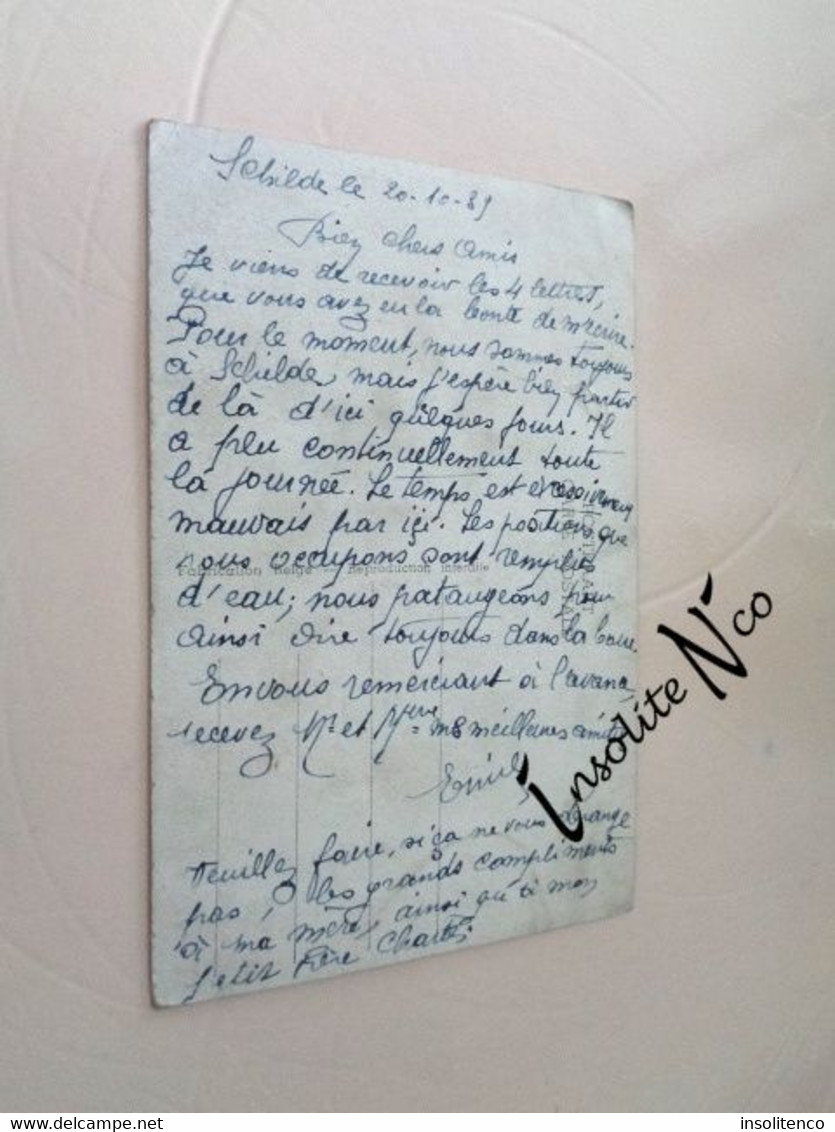 Schilde le 20-10-39
Bien chers Amis
Je viens de recevoir les 4 lettres,
que vous avez eu la bonté de m'écrire.
Pour le moment, nous sommes toujours
à Schilde, mais j'espère bien partir
de là d'ici quelques jours. Il
a plu continuellement toute
la journée. Le temps est
mauvais par ici. Les positions que
nous occupons sont remplies
Fabrication Belge — Reproduction interdite
d'eau; nous pataugeons pour
ainsi dire toujours dans la boue.
En vous remerciant à l'avance,
recevez Mr et Mme mes meilleures amitiés
Emile
Veuillez faire, si ça ne vous dérange
pas, les grands compliments
à ma mère, ainsi qu'à mon
petit frère Charles
Insolite N'co
insolitenco